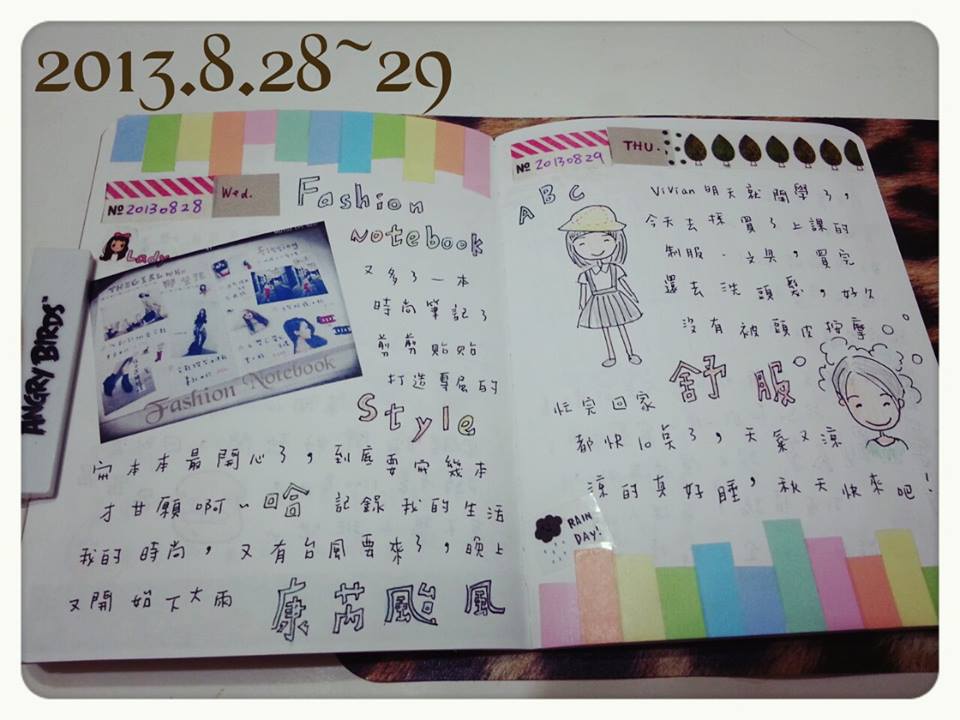 2013.8.28~29
№ 20130828
Wed.
Fashion
Notebook
Lady
又多了一本
時尚筆記了
剪剪貼貼
打造專屬的
Style
Fashion Notebook
ANGRY BIRDS"
寫本本最開心了，到底要寫幾本
才甘願啊~回 記錄我的生活
我的時尚，又有台風要來了，晚上
又開始下大雨
康芮颱風
№ 20130829
THU.
A B C
ViVian明天就開學了，
今天去採買了上課的
制服、文具，買完
還去洗頭髮，好久
沒有被頭皮按摩
舒服
忙完回家
都快10點了，天氣又涼
涼的真好睡，秋天快來吧！
RAIN
DAY!